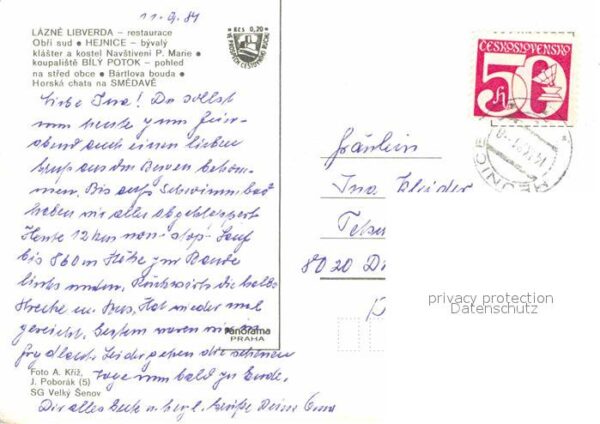 11.9.84
LÁZNĚ LIBVERDA – restaurace
Obří sud • HEJNICE – bývalý
klášter a kostel Navštívení P. Marie •
koupaliště BÍLÝ POTOK – pohled
na střed obce • Bártlova bouda •
Horská chata na SMĚDAVĚ
Kčs 0,20
ČESKOSLOVENSKO
50
h
HEJNICE
Liebe Ina! Du sollst
nun heute zum Feier-
abend auch einen lieben
Gruß aus den Bergen bekom-
men. Bis aufs Schwimmbad
haben wir alles abgeklappert
Heute 12 km non-stop-Lauf
bis 860 m Höhe zur Baude
links unten. Rückwärts die halbe
Strecke m. Bus. Hat wieder mal
gereicht. Gestern waren wir in
Frydland. Leider gehen die schönen
Tage nun bald zu Ende.
Dir alles Gute u. herzl. Grüße Deine Oma
Fräulein
Ina
8020
panorama
PRAHA
Foto A. Kříž,
J. Poborák (5)
SG Velký Šenov
privacy protection
Datenschutz